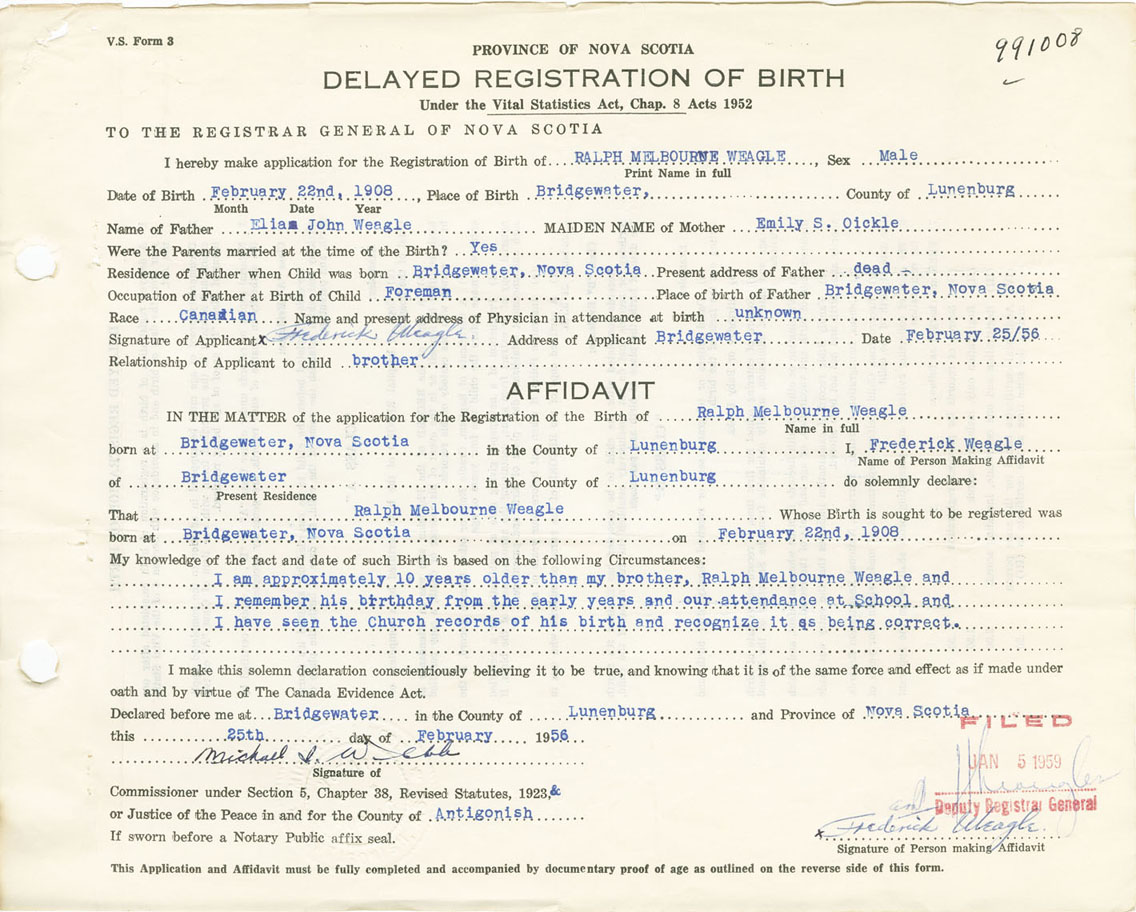 V.S. Form 3
991008
PROVINCE OF NOVA SCOTIA
DELAYED REGISTRATION OF BIRTH
Under the Vital Statistics Act, Chap. 8 Acts 1952
TO THE REGISTRAR GENERAL OF NOVA SCOTIA
I hereby make application for the Registration of Birth of RALPH MELBOURNE WEAGLE, Sex Male
Print Name in full
Date of Birth February 22nd, 1908, Place of Birth Bridgewater, County of Lunenburg
Month Date Year
Name of Father Elias John Weagle MAIDEN NAME of Mother Emily S. Oickle
Were the Parents married at the time of the Birth? Yes
Residence of Father when Child was born Bridgewater, Nova Scotia Present address of Father dead -
Occupation of Father at Birth of Child Foreman Place of birth of Father Bridgewater, Nova Scotia
Race Canadian Name and present address of Physician in attendance at birth unknown
Signature of Applicant x Frederick Weagle. Address of Applicant Bridgewater Date February 25/56
Relationship of Applicant to child brother
AFFIDAVIT
IN THE MATTER of the application for the Registration of the Birth of Ralph Melbourne Weagle
Name in full
born at Bridgewater, Nova Scotia in the County of Lunenburg I, Frederick Weagle
Name of Person Making Affidavit
of Bridgewater in the County of Lunenburg do solemnly declare:
Present Residence
That Ralph Melbourne Weagle Whose Birth is sought to be registered was
born at Bridgewater, Nova Scotia on February 22nd, 1908
My knowledge of the fact and date of such Birth is based on the following Circumstances:
I am approximately 10 years older than my brother, Ralph Melbourne Weagle and
I remember his birthday from the early years and our attendance at School and
I have seen the Church records of his birth and recognize it as being correct.
I make this solemn declaration conscientiously believing it to be true, and knowing that it is of the same force and effect as if made under
oath and by virtue of The Canada Evidence Act.
Declared before me at Bridgewater in the County of Lunenburg and Province of Nova Scotia
this 25th day of February 1956
FILED
JAN 5 1959
Deputy Registrar General
Michael I. Webb
Signature of
Commissioner under Section 5, Chapter 38, Revised Statutes, 1923,&
or Justice of the Peace in and for the County of Antigonish
x Frederick Weagle.
If sworn before a Notary Public affix seal.
Signature of Person making Affidavit
This Application and Affidavit must be fully completed and accompanied by documentary proof of age as outlined on the reverse side of this form.